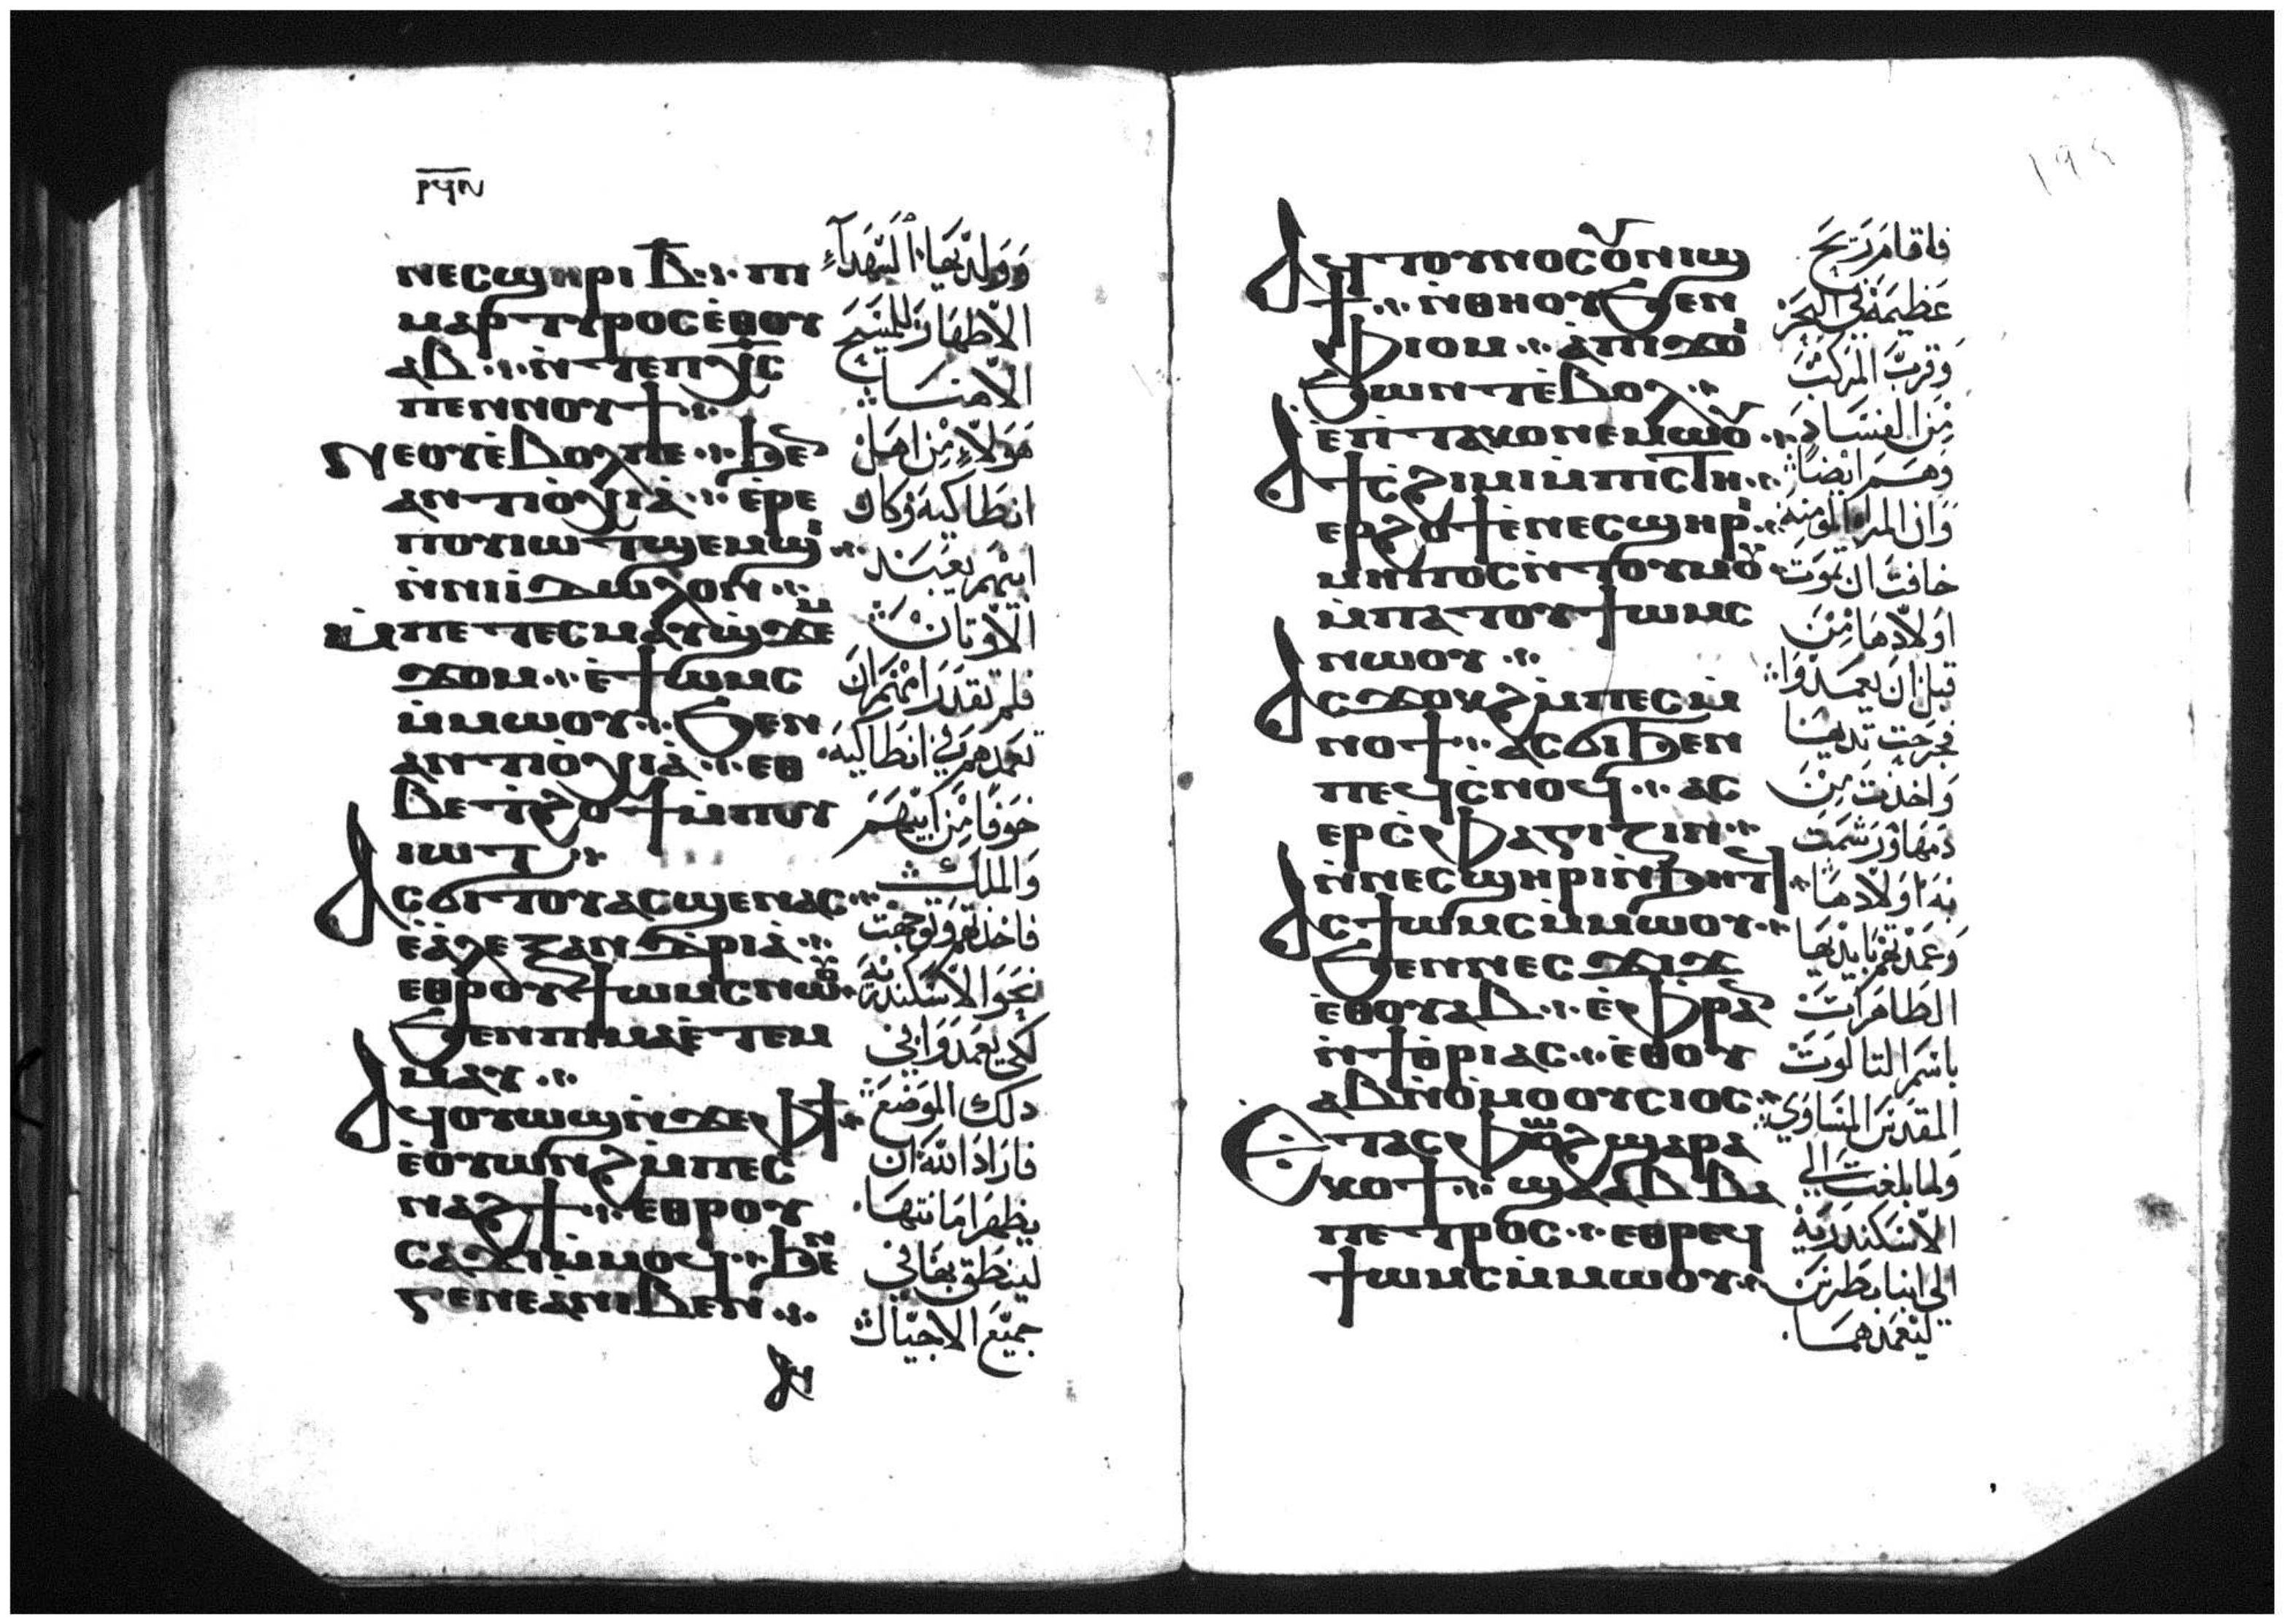 ⲣϥⲏ
ⲛⲉⲥϣⲏⲣⲓ ⲃ̅ ⲙ
ⲙⲁⲣⲧⲩⲣⲟⲥ ⲉ̀ⲑⲟⲩ
ⲁⲃ ⲛ̀ⲧⲉ ⲡⲭ̅ⲥ
ⲡⲉⲛⲛⲟⲩϯ
ϩⲁⲛⲉⲃⲟⲗ ⲛⲉ ϧⲉ
ⲁⲛⲧⲓⲟ̀ⲭⲓⲁ̀ ⲉ̀ⲣⲉ
ⲡⲟⲩⲓⲱⲧ ϣⲉⲙϣⲓ
ⲛ̀ⲛⲓⲓ̀ⲇⲱⲗⲟⲛ
ⲙ̀ⲡⲉ ⲧⲉⲥⲙⲁⲩ ϣ̀ϫⲉⲙ
ϫⲟⲙ ⲉ̀ϯⲱⲙⲥ
ⲙ̀ⲙⲱⲟⲩ ϧⲉⲛ
ⲁⲛⲧⲓⲟ̀ⲭⲓⲁ̀ ⲉⲑ
ⲃⲉ ⲧ̀ϩⲟϯ ⲙ̀ⲡⲟⲩ
ⲓⲱⲧ
ⲁⲥϭⲓⲧⲟⲩ ⲁⲥϣⲉⲛⲁⲥ
ⲉ̀ⲁ̀ⲗⲉⲝⲁⲛⲇⲣⲓⲁ̀
ⲉⲑⲣⲟⲩϯⲱⲙⲥ ⲛⲱⲟⲩ
ϧⲉⲛ ⲡⲓⲙⲁ ⲉ̀ⲧⲉⲙ
ⲙⲁⲩ
ⲁϥⲟⲩⲱϣ ⲛ̀ϫⲉ ⲫϯ
ⲉ̀ⲟⲩⲱⲛϩ ⲙ̀ⲡⲉⲥ
ⲛⲁϩϯ ⲉⲑⲣⲟⲩ
ⲥⲁϫⲓ ⲙ̀ⲙⲟϥ ϧⲉⲛ
ⲅⲉⲛⲉⲁ ⲛⲓⲃⲉⲛ
ⲁϥ
وولديها الشهداء
الاطهار للمسيح
الاهنا
هولاء من اهل
انطاكيه وكان
ابيهم يعبد
الاوتان
فلم تقدر امهم ان
تعمدهم في انطاكيه
خوفا من ابيهم
والملك
فاخذتهم وتوجهت
نحو الاسكندريه
لكي يعمدوا في
دلك الموضع
فاراد الله ان
يظهر امانتها
لينطق بها في
جميع الاجيال
ⲁϥⲧⲟⲩⲛⲟⲥ ⲟⲩⲛⲓϣ
ϯ ⲛ̀ⲑⲏⲟⲩ ϧⲉⲛ
ⲫⲓⲟⲙ ⲁ̀ ⲡⲓϫⲟⲓ
ϧⲱⲛⲧ ⲉ̀ⲃⲟⲗ
ⲉ̀ⲡⲧⲁⲕⲟ ⲛⲉⲙⲱⲟⲩ
ⲁ ϯⲥ̀ϩⲓⲙⲓ ⲙ̀ⲡⲓⲥⲧⲏ
ⲉⲣϩⲟϯ ⲉ̀ⲛⲉⲥϣⲏⲣⲓ
ⲙⲏⲡⲟⲥ ⲛ̀ⲧⲟⲩⲙⲟⲩ
ⲙ̀ⲡⲁⲧⲟⲩϯⲱⲙⲥ
ⲛⲱⲟⲩ
ⲁⲥϫⲟⲕϩ ⲙ̀ⲡⲉⲥⲙ̀
ⲛⲟϯ ⲁⲥϭⲓ ϧⲉⲛ
ⲡⲉϥⲥ̀ⲛⲟϥ ⲁⲥ
ⲉⲣⲥ̀ⲫⲣⲁⲅⲓⲍⲓⲛ
ⲛ̀ⲛⲉⲥϣⲏⲣⲓ ⲛ̀ϧⲏⲧϥ
ⲁⲥϯⲱⲙⲥ ⲙ̀ⲙⲱⲟⲩ
ϧⲉⲛ ⲛⲉⲥϫⲓϫ
ⲉ̀ⲑⲟⲩⲁⲃ ⲉ̀ⲫⲣⲁⲛ
ⲛ̀ϯⲑ̀ⲣⲓⲁⲥ ⲉ̀ⲑⲟⲩ
ⲁⲃ ⲛ̀ⲟ̀ⲙⲟⲟⲩⲥⲓⲟⲥ
ⲉⲧⲁⲥⲫⲟϩ ϣⲁ ⲣⲁ
ⲕⲟϯ ϣⲁ ⲁⲃⲃⲁ
ⲡⲉⲧⲣⲟⲥ ⲉⲑⲣⲉϥ
ϯⲱⲙⲥ ⲙ̀ⲙⲱⲟⲩ
فاقام ريح
عظيمة في البحر
وقرب المركب
من الفساد
وهم ايضا
وان المراه المومنه
خافت ان تموت
اولادها من
قبل ان يعمدوا
فجرحت تديها
واخذت من
دمها ورشمت
به اولادها
وعمدتهم بايديها
الطاهرات
باسم التالوت
المقدس المساوي
ولما بلغت الي
الاسكندرية
الي انبا بطرس
ليعمدهما